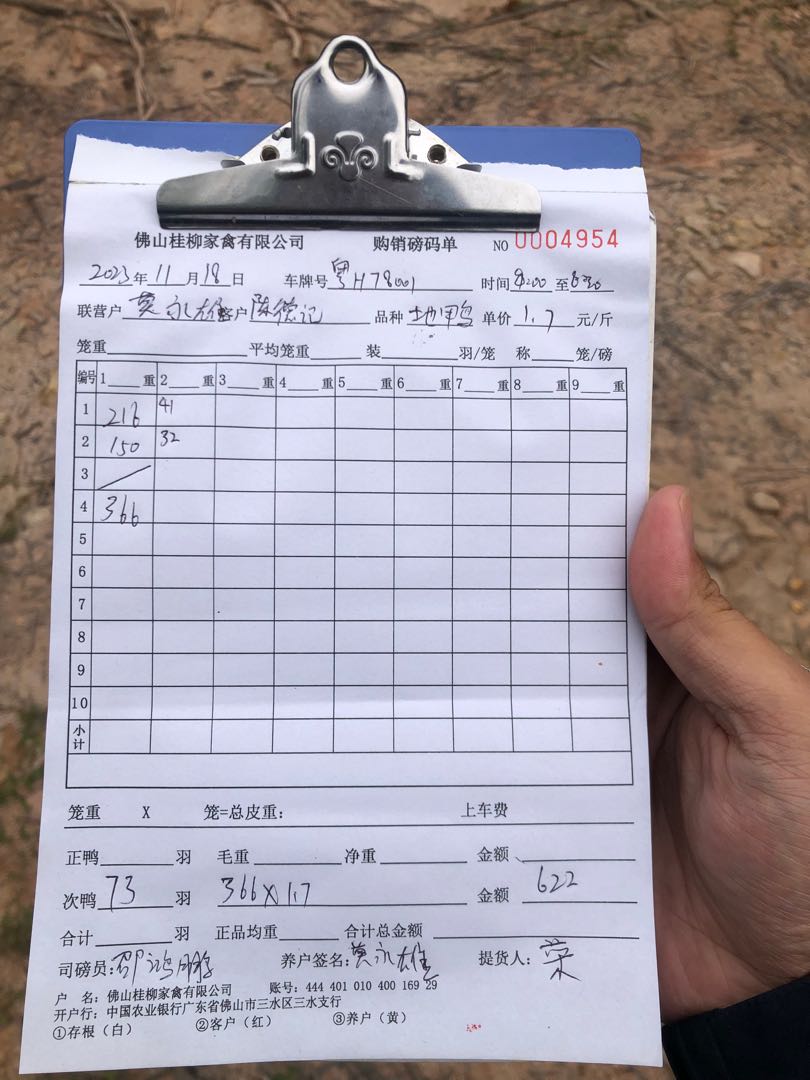 佛山桂柳家禽有限公司 购销磅码单 NO 0004954
2023年 11 月 18 日 车牌号 粤H78001 时间 至
联营户 莫永雄 客户 陈德记 品种 地鸭 单价 1.7 元/斤
笼重 平均笼重 装 羽/笼 称 笼/磅
编号 1 重 2 重 3 重 4 重 5 重 6 重 7 重 8 重 9 重
1 216 41
2 150 32
3
4 366
5
6
7
8
9
10
小计
笼重 X 笼=总皮重: 上车费
正鸭 羽 毛重 净重 金额
次鸭 73 羽 366×1.7 金额 622
合计 羽 正品均重 合计总金额
司磅员: 养户签名: 莫永雄 提货人: 荣
户 名: 佛山桂柳家禽有限公司 账号: 444 401 010 400 169 29
开户行: 中国农业银行广东省佛山市三水区三水支行
①存根(白) ②客户(红) ③养户(黄)